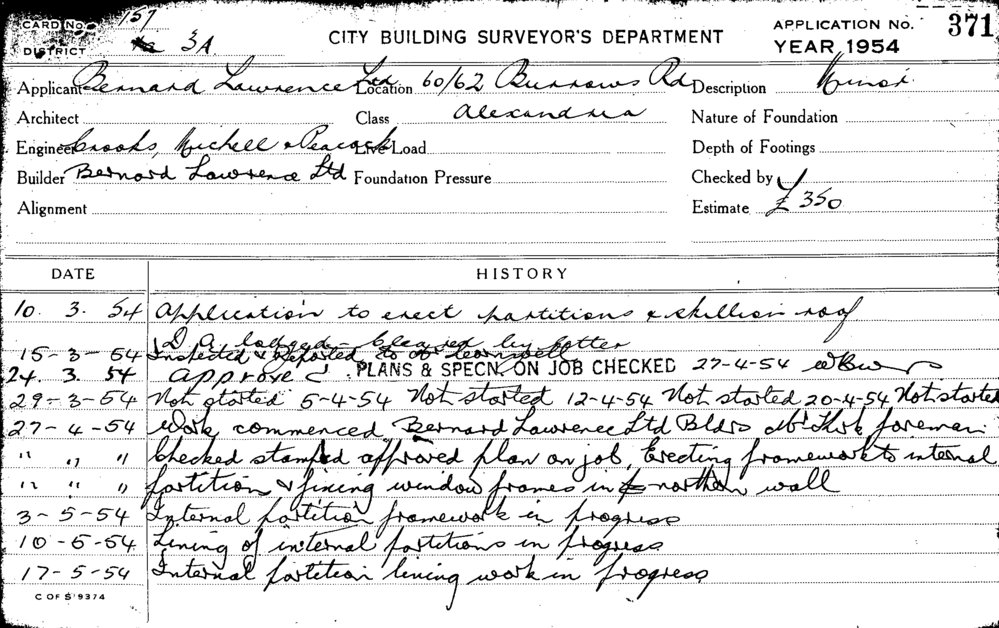 CARD No. 157
DISTRICT 3A
CITY BUILDING SURVEYOR'S DEPARTMENT
APPLICATION No. 371
YEAR 1954
Applicant Bernard Lawrence Ltd Location 60/62 Burrows Rd Description Minor
Architect Class Alexandria Nature of Foundation
Engineer Crooks, Michell & Peacock Live Load Depth of Footings
Builder Bernard Lawrence Ltd Foundation Pressure Checked by
Alignment Estimate £350
DATE HISTORY
10. 3. 54 Application to erect partitions & skillion roof
D A lodged - Cleared by Potter
15-3-54 Inspected & Reported to Mr
24. 3. 54 Approved PLANS & SPECN. ON JOB CHECKED 27-4-54
29-3-54 Not started 5-4-54 Not started 12-4-54 Not started 20-4-54 Not started
27-4-54 Work commenced Bernard Lawrence Ltd Bldrs Mr Kirk foreman
" " " Checked stamped approved plan on job, Erecting framework to internal
" " " partition & fixing window frames in northern wall
3-5-54 Internal partition framework in progress
10-5-54 Lining of internal partitions in progress
17-5-54 Internal partition lining work in progress
C OF S 9374